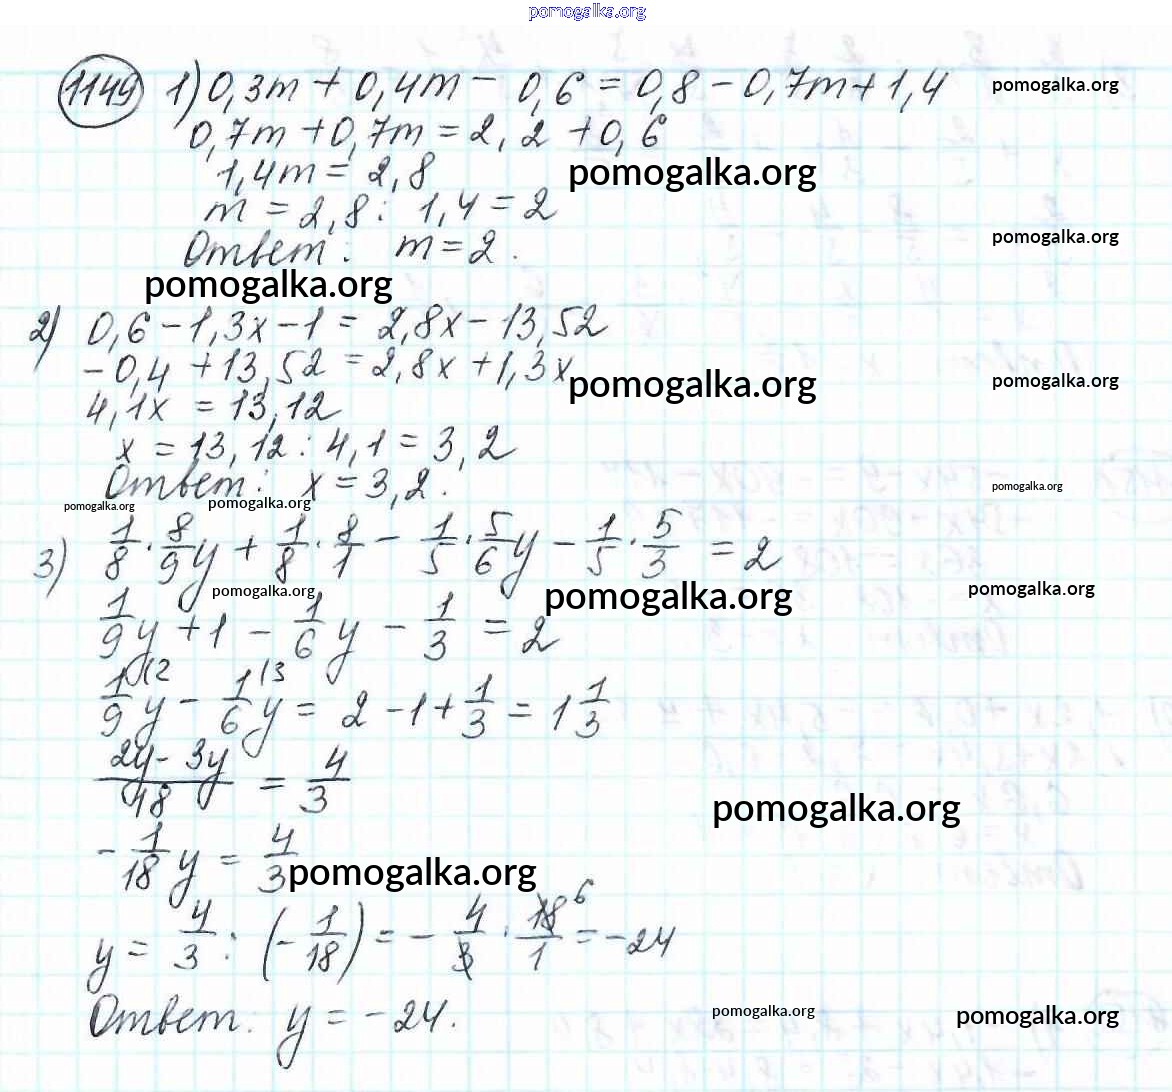 pomogalka.org
1149 1) 0,3m + 0,4m - 0,6 = 0,8 - 0,7m + 1,4 pomogalka.org
0,7m + 0,7m = 2,2 + 0,6
1,4m = 2,8 pomogalka.org
m = 2,8 : 1,4 = 2
Ответ: m = 2. pomogalka.org
pomogalka.org
2) 0,6 - 1,3x - 1 = 2,8x - 13,52
-0,4 + 13,52 = 2,8x + 1,3x pomogalka.org pomogalka.org
4,1x = 13,12
x = 13,12 : 4,1 = 3,2
Ответ: x = 3,2. pomogalka.org
pomogalka.org pomogalka.org
3) 1/8 · 8/9 y + 1/8 · 8/1 - 1/5 · 5/6 y - 1/5 · 5/3 = 2
pomogalka.org pomogalka.org pomogalka.org
1/9 y + 1 - 1/6 y - 1/3 = 2
1/9 y \2 - 1/6 y \3 = 2 - 1 + 1/3 = 1 1/3
2y - 3y / 18 = 4/3
pomogalka.org
- 1/18 y = 4/3 pomogalka.org
y = 4/3 : (- 1/18) = - 4/3 · 18/1 6 = -24
Ответ: y = -24. pomogalka.org pomogalka.org